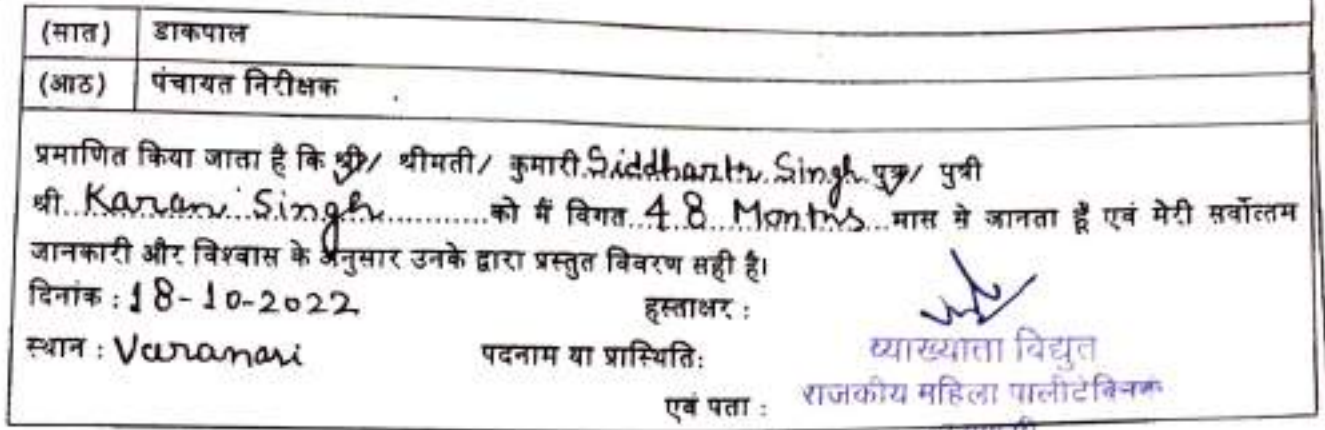 (सात) डाकपाल
(आठ) पंचायत निरीक्षक
प्रमाणित किया जाता है कि श्री/ श्रीमती/ कुमारी.Siddharth Singh पुत्र/ पुत्री
श्री..Karan Singh............को मैं विगत..48 Months...मास से जानता हूँ एवं मेरी सर्वोत्तम
जानकारी और विश्वास के अनुसार उनके द्वारा प्रस्तुत विवरण सही है।
दिनांक : 18-10-2022 हस्ताक्षर :
स्थान : Varanasi पदनाम या प्रास्थिति: व्याख्याता विद्युत
एवं पता : राजकीय महिला पालीटेक्निक